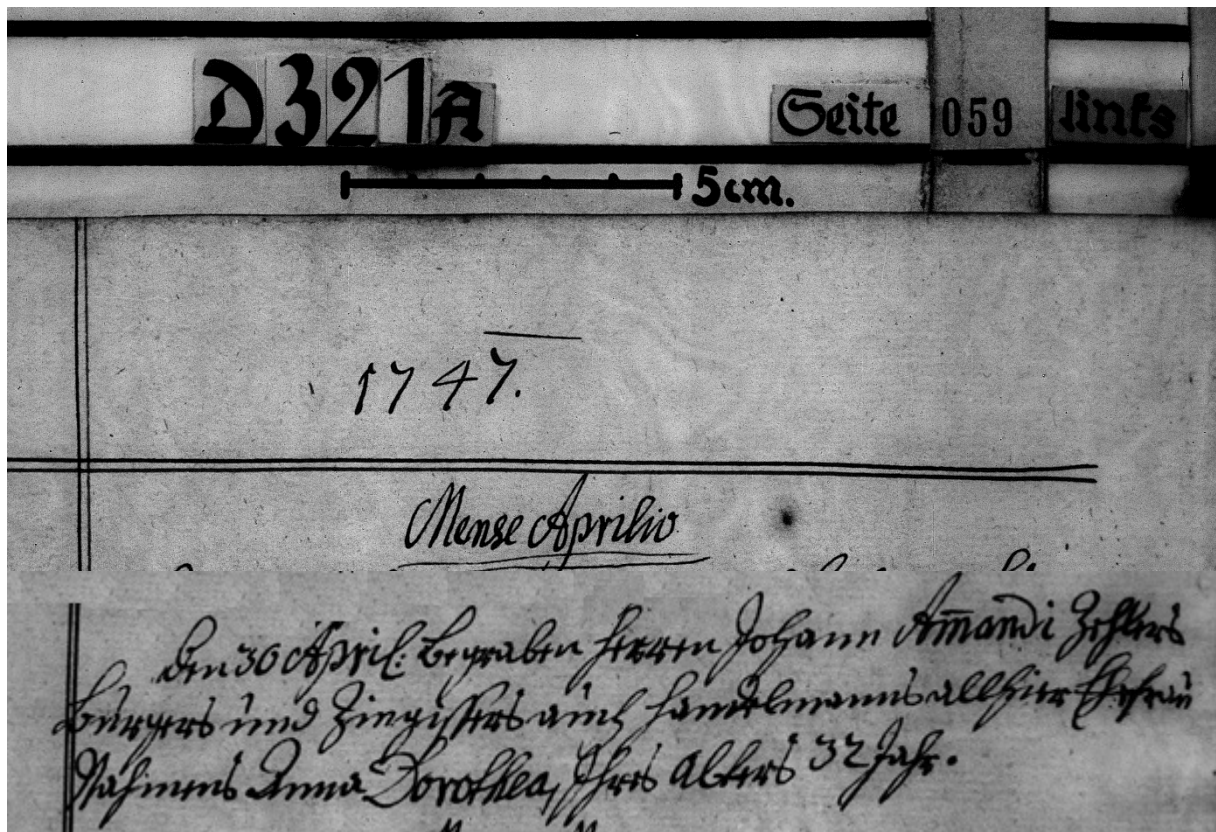 D 321 A Seite 059 links
5 cm.
1747.
Mense Aprilio
den 30 April: begraben Herren Johann Am̅andi Zehlers
Bürgers und Zingißers auch Handelmanns allhier Ehefrau
Nahmens Anna Dorothea, Ihres Alters 32 Jahr.